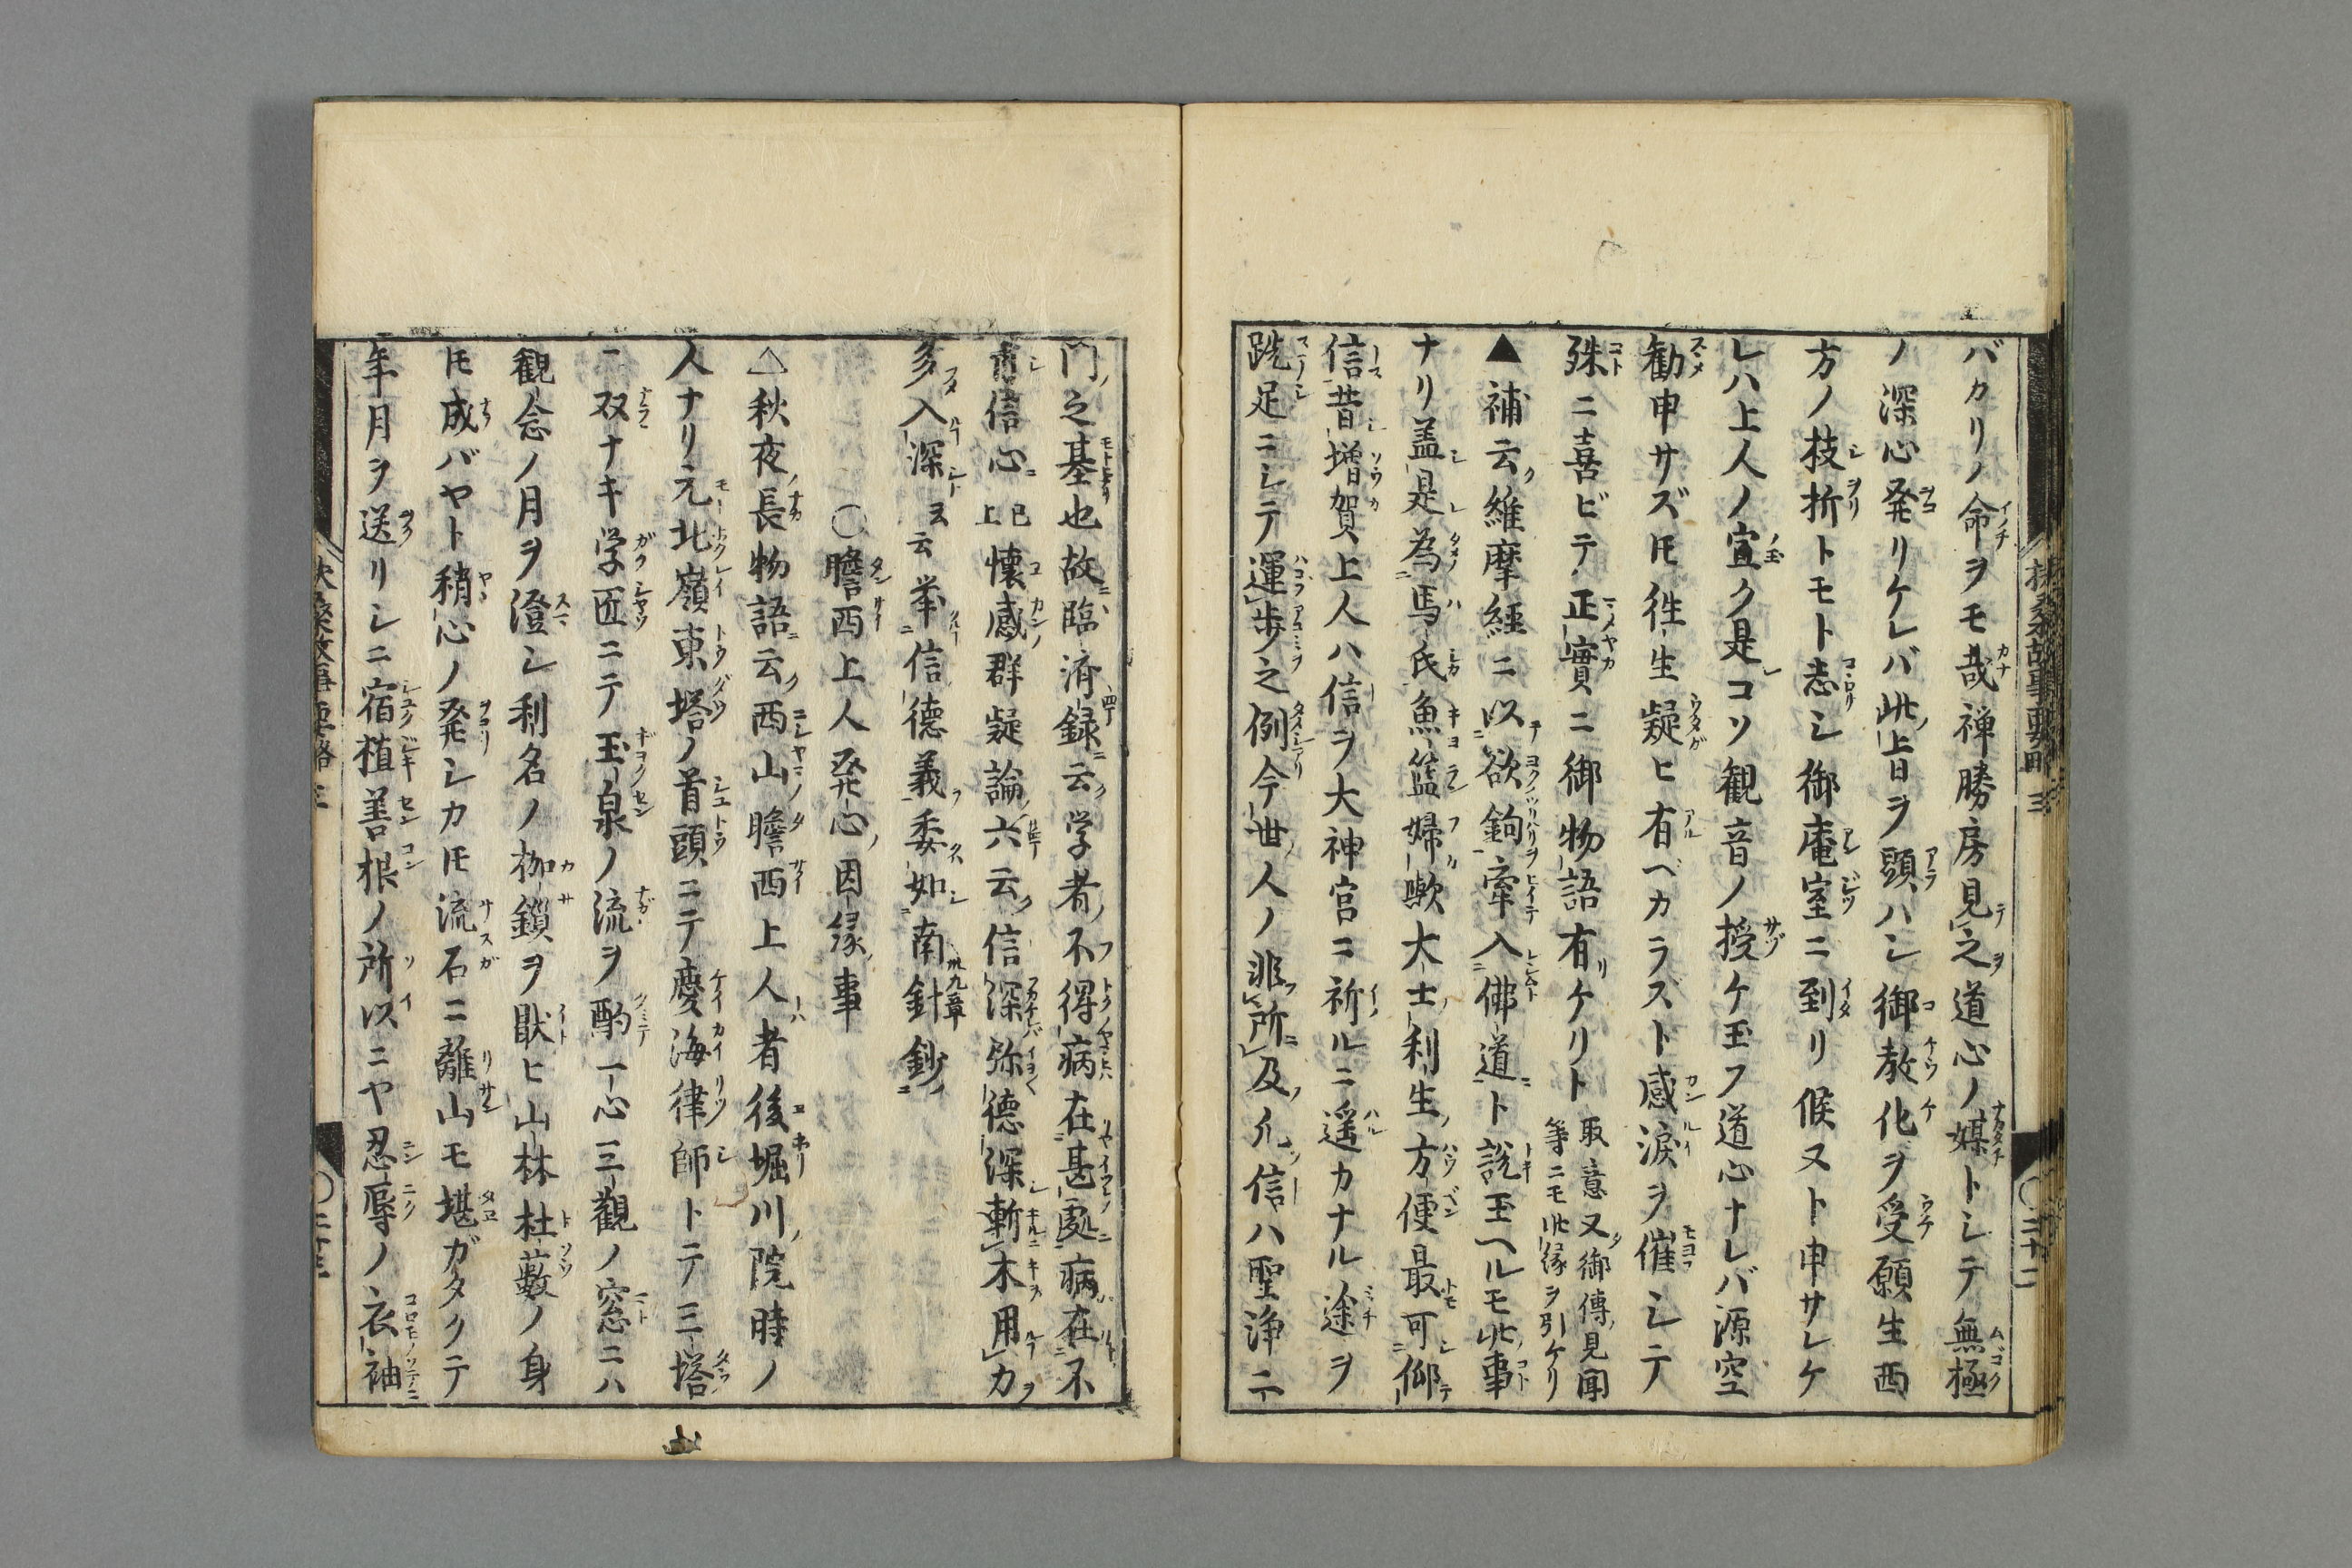 バカリノ命ヲモ哉禅勝房見之道心ノ媒トシテ無極
ノ深心発リケレバ此旨ヲ頭ハシ御教化ヲ受願生西
方ノ枝折トモト志シ御庵室ニ到リ候ヌト申サレケ
レハ上人ノ宣ク是コソ観音ノ授ケ玉フ道心ナレバ源空
勧申サズ𪜈徃生疑ヒ有ベカラズト感涙ヲ催シテ
殊ニ喜ビテ正實ニ御物語有ケリト取意又御傳見聞
等ニモ此縁ヲ引ケリ
▲補云維摩經ニ以欲鉤牽入佛道ト説玉ヘルモ此事
ナリ盖是為馬氏魚籃婦歟大士利生方便最可仰
信昔増賀上人ハ信ヲ大神宮ニ祈ルニ遥カナル途ヲ
跣足ニシテ運歩之例今世人ノ非所及凢信ハ聖浄二
採桑故事要略三
〇二十二
門之基也故臨済録云学者不得病在甚處病在不
肯信心已上懐感群疑論六云信深弥德深斬木用力
多入深云云挙信德義委如南針鈔
〇瞻西上人発心因縁事
△秋夜長物語云西山瞻西上人者後堀川院時ノ
人ナリ元北嶺東塔ノ首頭ニテ慶海律師トテ三塔
ニ双ナキ学匠ニテ玉泉ノ流ヲ酌一心三観ノ窓ニハ
観念ノ月ヲ澄シ利名ノ枷鎖ヲ猒ヒ山林杜藪ノ身
𪜈成バヤト稍心ノ発シカ𪜈流石ニ離山モ堪ガタクテ
年月ヲ送リシニ宿植善根ノ所以ニヤ忍辱ノ衣袖
〇二十三
山